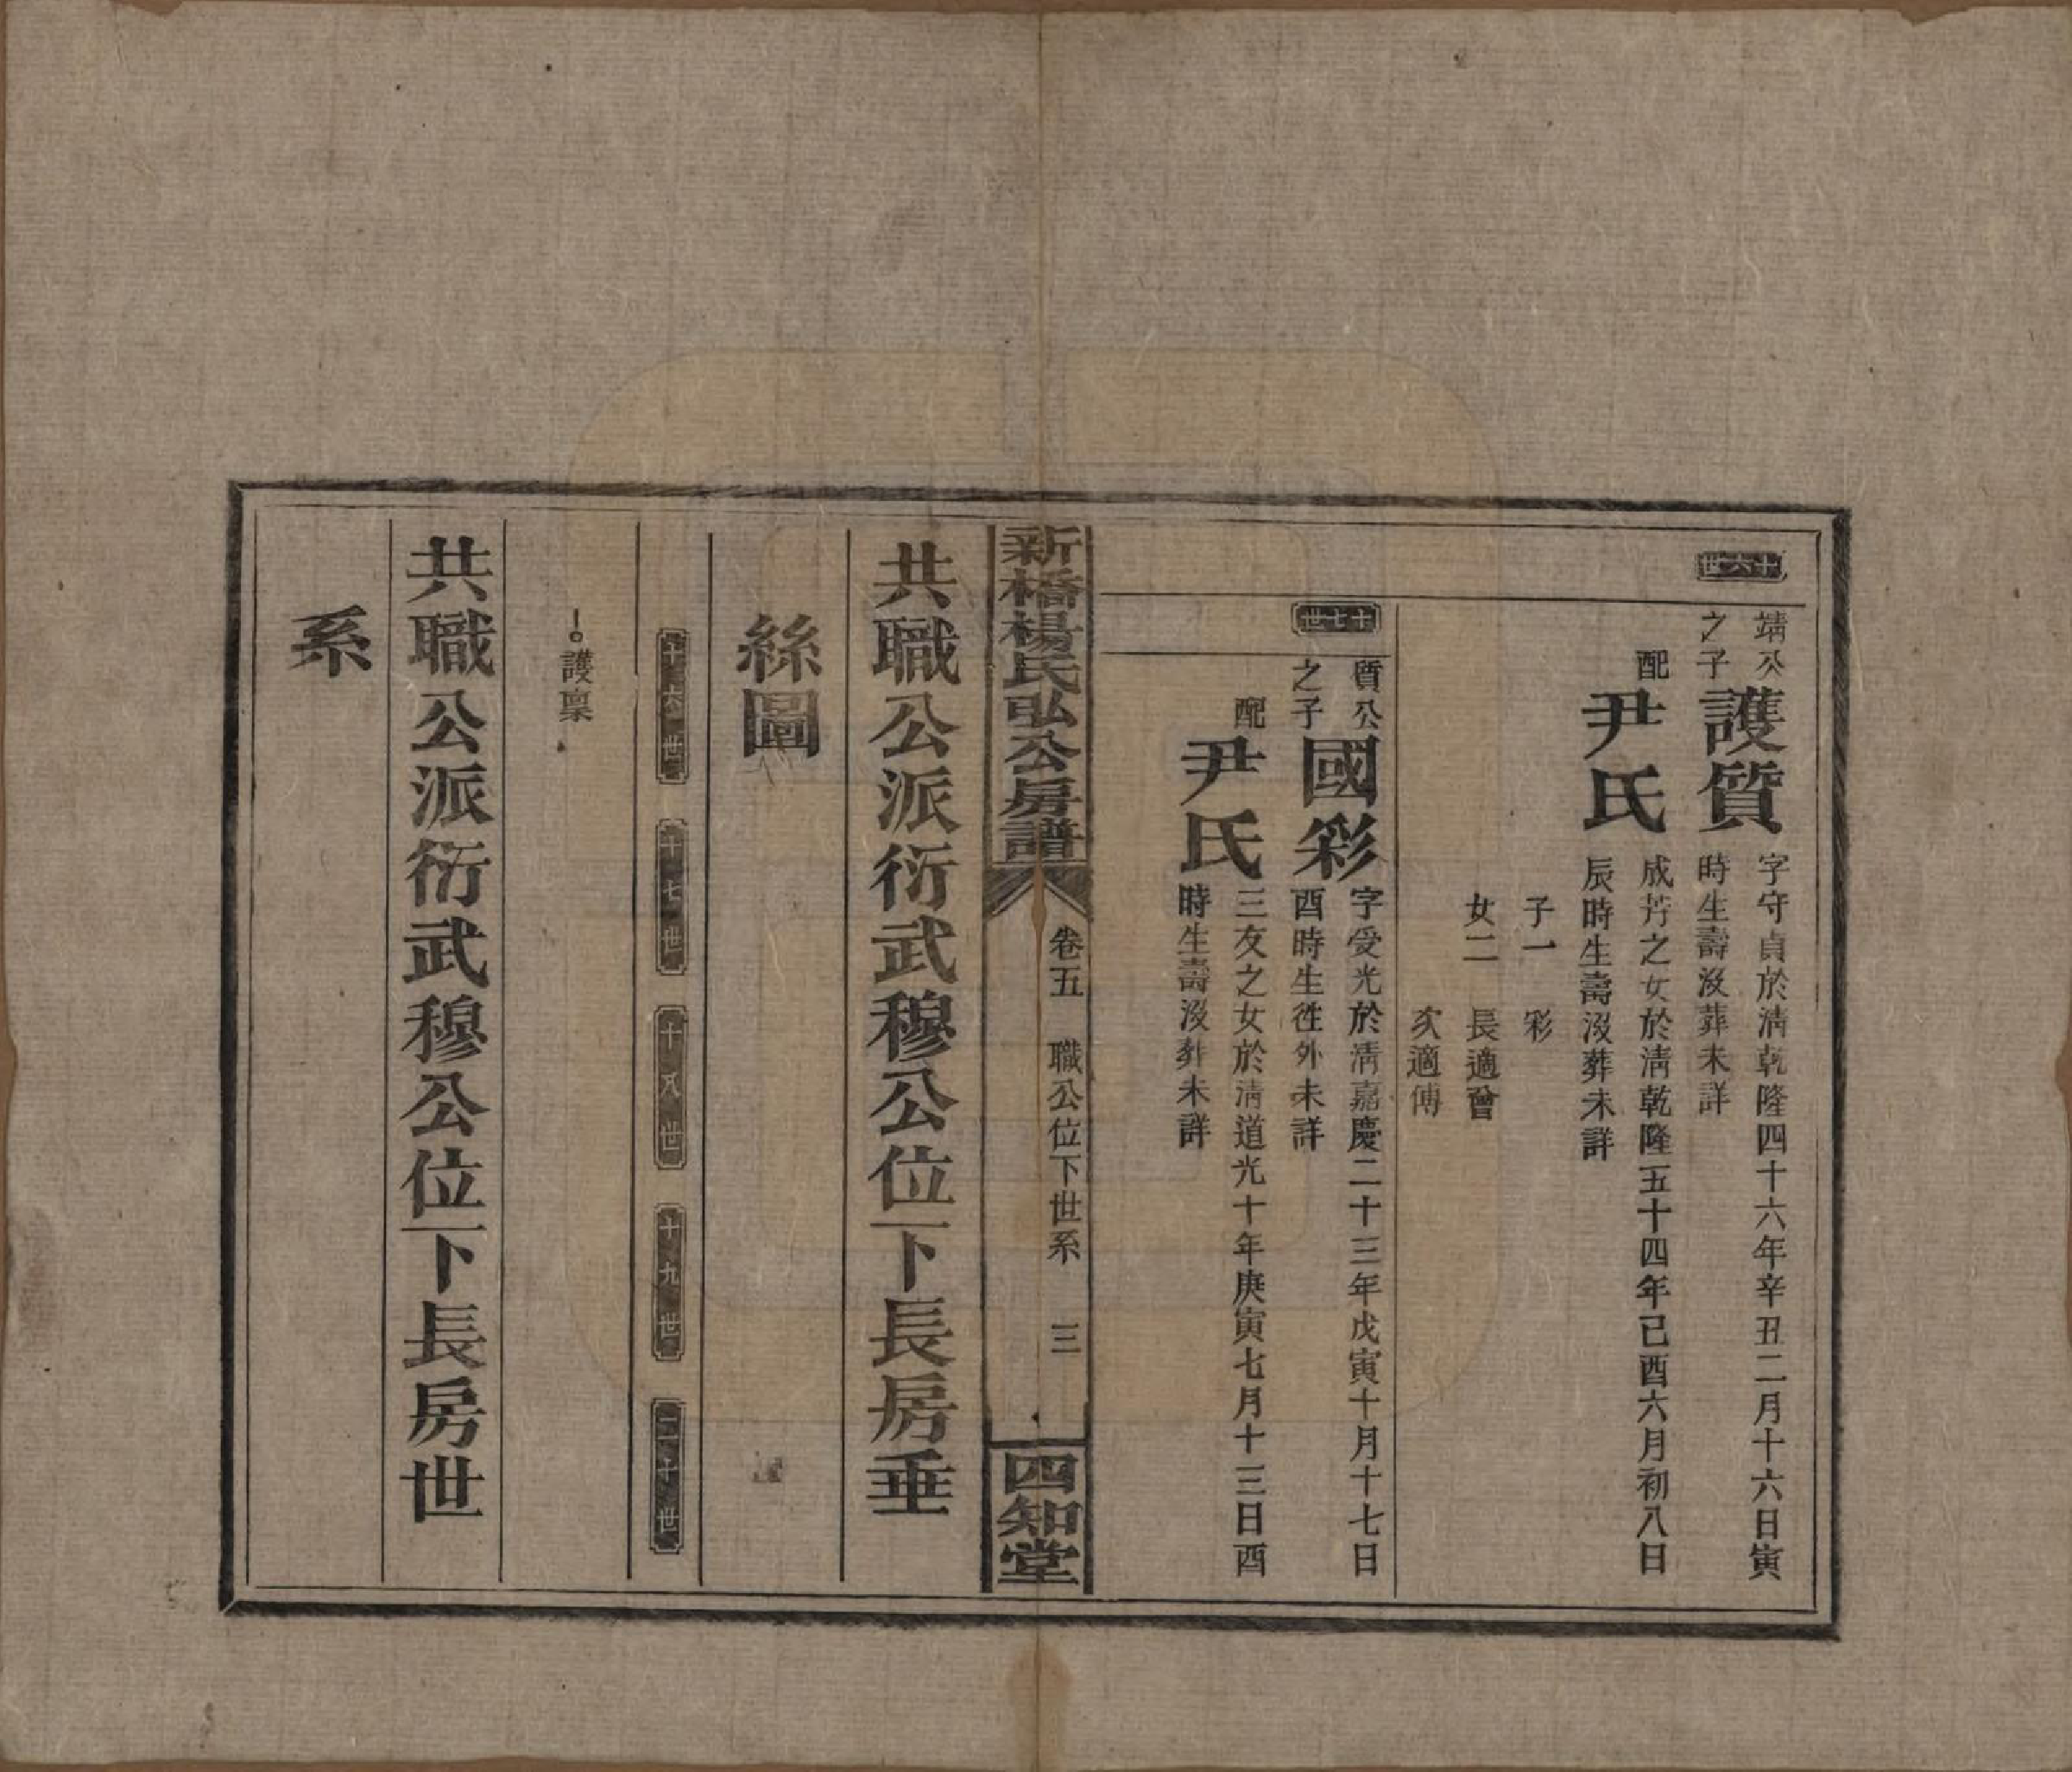 十六世
靖公之子
護質
字守貞於淸乾隆四十六年辛丑二月十六日寅
時生壽沒葬未詳
配
尹氏
成芳之女於淸乾隆五十四年己酉六月初八日
辰時生壽沒葬未詳
子一　彩
女二　長適曾
次適傅
十七世
質公之子
國彩
字受光於淸嘉慶二十三年戊寅十月十七日
酉時生徃外未詳
配
尹氏
三友之女於淸道光十年庚寅七月十三日酉
時生壽沒葬未詳
新橋楊氏弘公房譜
卷五　職公位下世系　三
四知堂
共職公派衍武穆公位下長房垂
絲圖
十六世　十七世　十八世　十九世　二十世
護稟
共職公派衍武穆公位下長房世
系